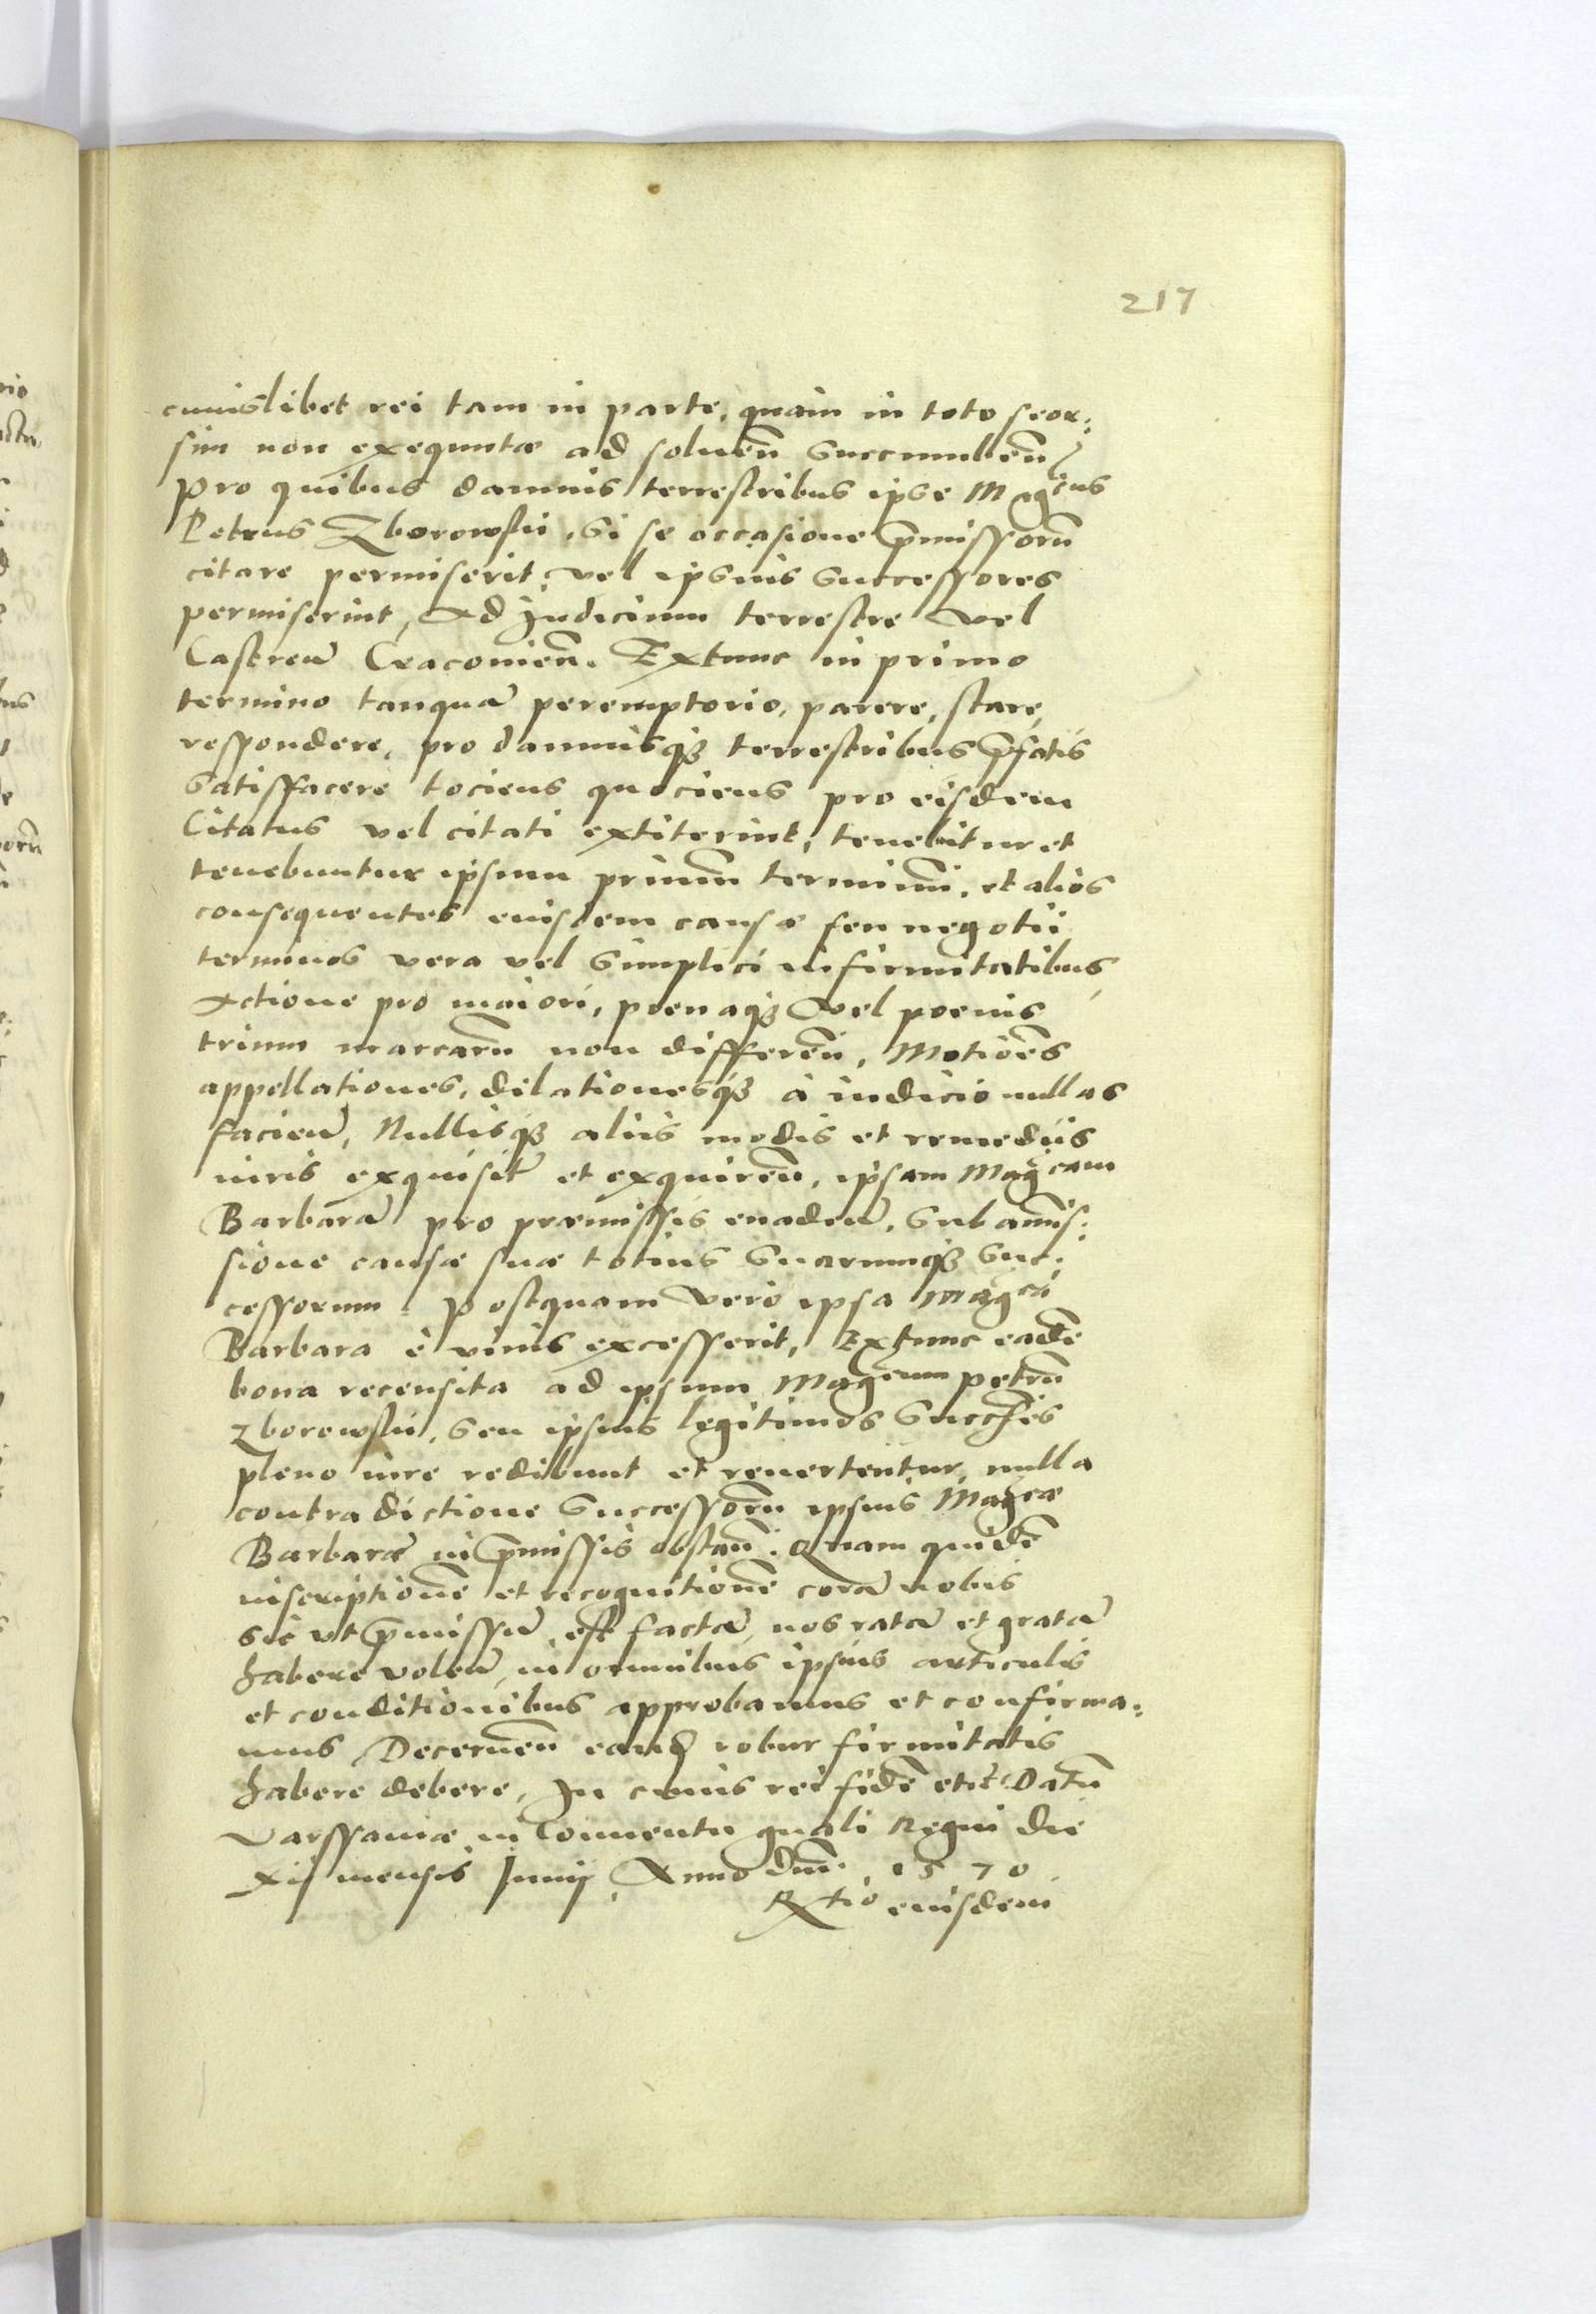 217
cuiuslibet rei tam in parte, quam in toto seor:
sim non exequutæ ad soluen̄ succumben̄
Pro quibus damnis terrestribus ipse Mag͠cus
Petrus Zborowski, si se occasione p̄missorū
citare permiserit, vel ipsius successores
permiserint, Ad Judicium terrestre vel
Castren̄ Cracouien̄. Extunc in primo
termino tanquā peremptorio, parere, stare,
respondere, pro damnisq; terrestribus p̄fatis
satisfacere tociens quociens pro eisdem
Citatus vel citati extiterint, tenebitur et
tenebuntur ipsum primū terminū, et alios
consequentes eiusdem causæ seu negotii
terminos vera vel simplici infirmitatibus
Actione pro maiori, poenaq; vel poenis
trium marcarū non differen̄, Motiōes
appellationes, dilationesq; à iudicio nullas
facien̄, Nullisq; aliis modis et remediis
iuris exquisit̄ et exquiren̄, ipsam Mag͠cam
Barbarā pro præmissis euaden̄, sub amis:
sione causæ suæ totius suarumq; suc:
cessorum. Postquam vero ipsa Mag͠ca
Barbara è viuis excesserit, Extunc eadē
bona recensita ad ipsum Mag͠cum Petrū
Zborowski, seu ipsius legitimos succ͠res
pleno iure redibunt et reuertentur, nulla
contradictione successorū ipsius Mag͠cæ
Barbaræ in p̄missis obstan̄. Quam quidē
inscriptionē et recognitionē corā nobis
sic vt p̄missū est factā, nos ratā et gratā
habere volen̄, in omnibus ipsius articulis
et conditionibus approbamus et confirma:
mus Decernen̄ eand̄ robur firmitatis
habere debere, In cuius rei fidē etc̄ Datū
Varssauiæ in Conuentu gn̄ali Regni die
xij mensis Junij Anno Dn̄i. 1570
R͠tio eiusdem